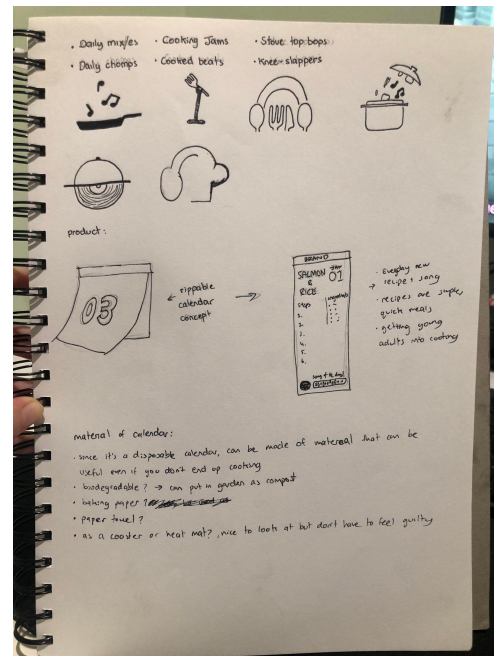 • Daily mix/es • Cooking Jams • Stove top bops
• Daily chomps • Cooked beats • Knee-slappers
product:
03
← rippable calendar concept →
BRAND
SALMON & RICE
01
steps
ingredients
1.
2.
3.
4.
5.
6.
song of the day!
• Everyday new
→ recipe & song
• recipes are simple,
quick meals
• getting young
adults into cooking
material of calendar:
• since it's a disposable calendar, can be made of matereal that can be
useful even if you don't end up cooking
• biodegradable? → can put in garden as compost
• baking paper?
• paper towel?
• as a coaster or heat mat?, nice to look at but don't have to feel guilty